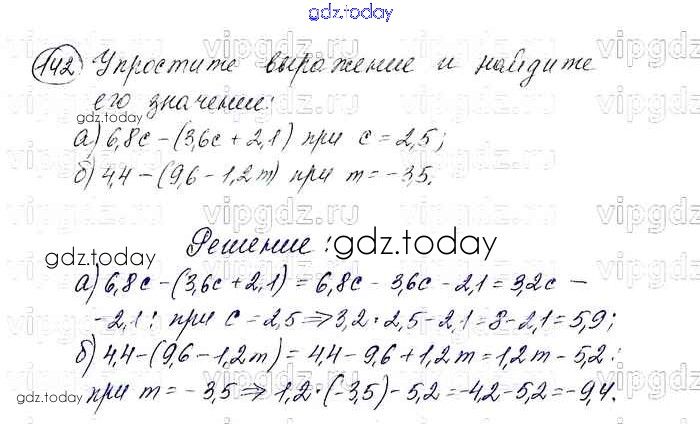 gdz.today
142 Упростите выражение и найдите
его значение:
gdz.today
а) 6,8c - (3,6c + 2,1) при c = 2,5;
б) 4,4 - (9,6 - 1,2m) при m = -3,5.
vipgdz.ru vipgdz.ru vipgdz.ru
Решение:
gdz.today gdz.today
а) 6,8c - (3,6c + 2,1) = 6,8c - 3,6c - 2,1 = 3,2c -
- 2,1; при c = 2,5 ⇒ 3,2 · 2,5 - 2,1 = 8 - 2,1 = 5,9;
б) 4,4 - (9,6 - 1,2m) = 4,4 - 9,6 + 1,2m = 1,2m - 5,2:
gdz.today
при m = -3,5 ⇒ 1,2 · (-3,5) - 5,2 = -4,2 - 5,2 = -9,4.